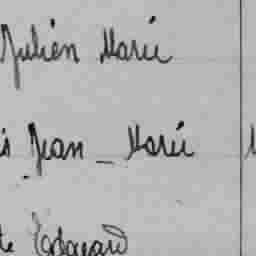 Julien Marie
is Jean _ Marie
te Edouard